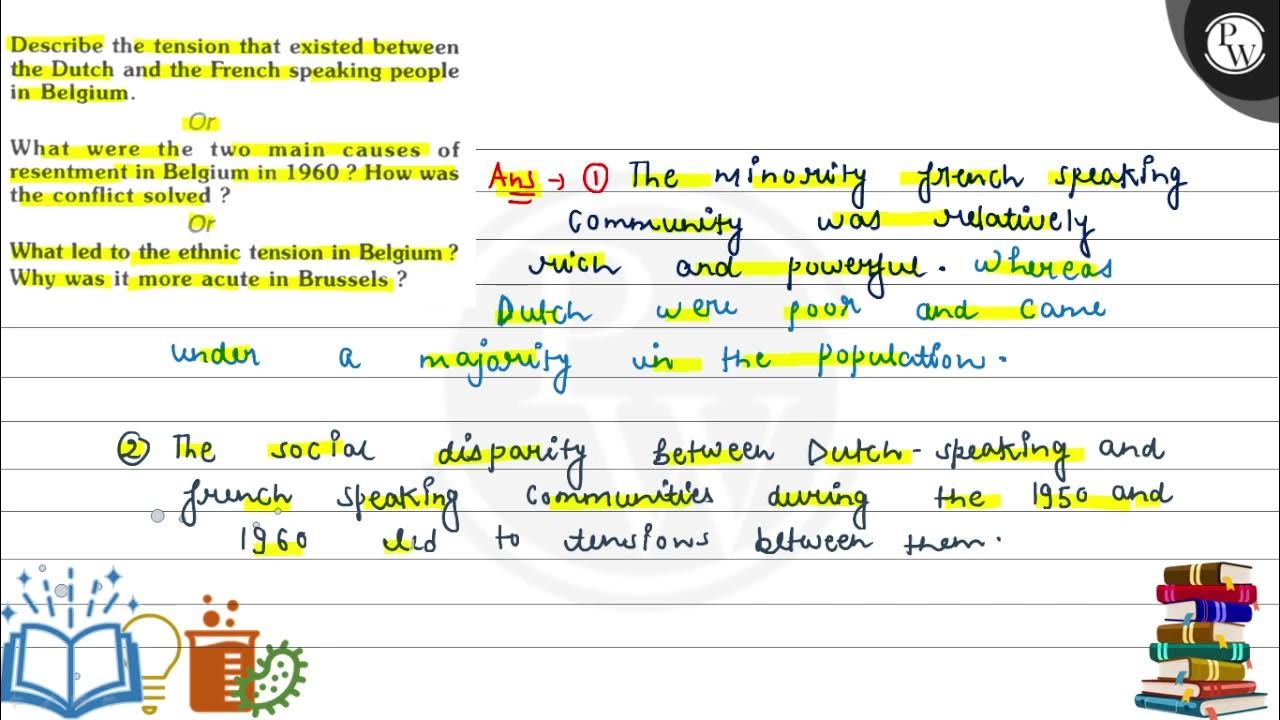 Describe the tension that existed between
the Dutch and the French speaking people
in Belgium.
Or
What were the two main causes of
resentment in Belgium in 1960 ? How was
the conflict solved ?
Or
What led to the ethnic tension in Belgium ?
Why was it more acute in Brussels ?
PW
Ans → ① The minority french speaking
Community was relatively
rich and powerful. Whereas
Dutch were poor and came
under a majority in the population.
② The social disparity between Dutch-speaking and
french speaking Communities during the 1950 and
1960 led to tensions between them.
PW